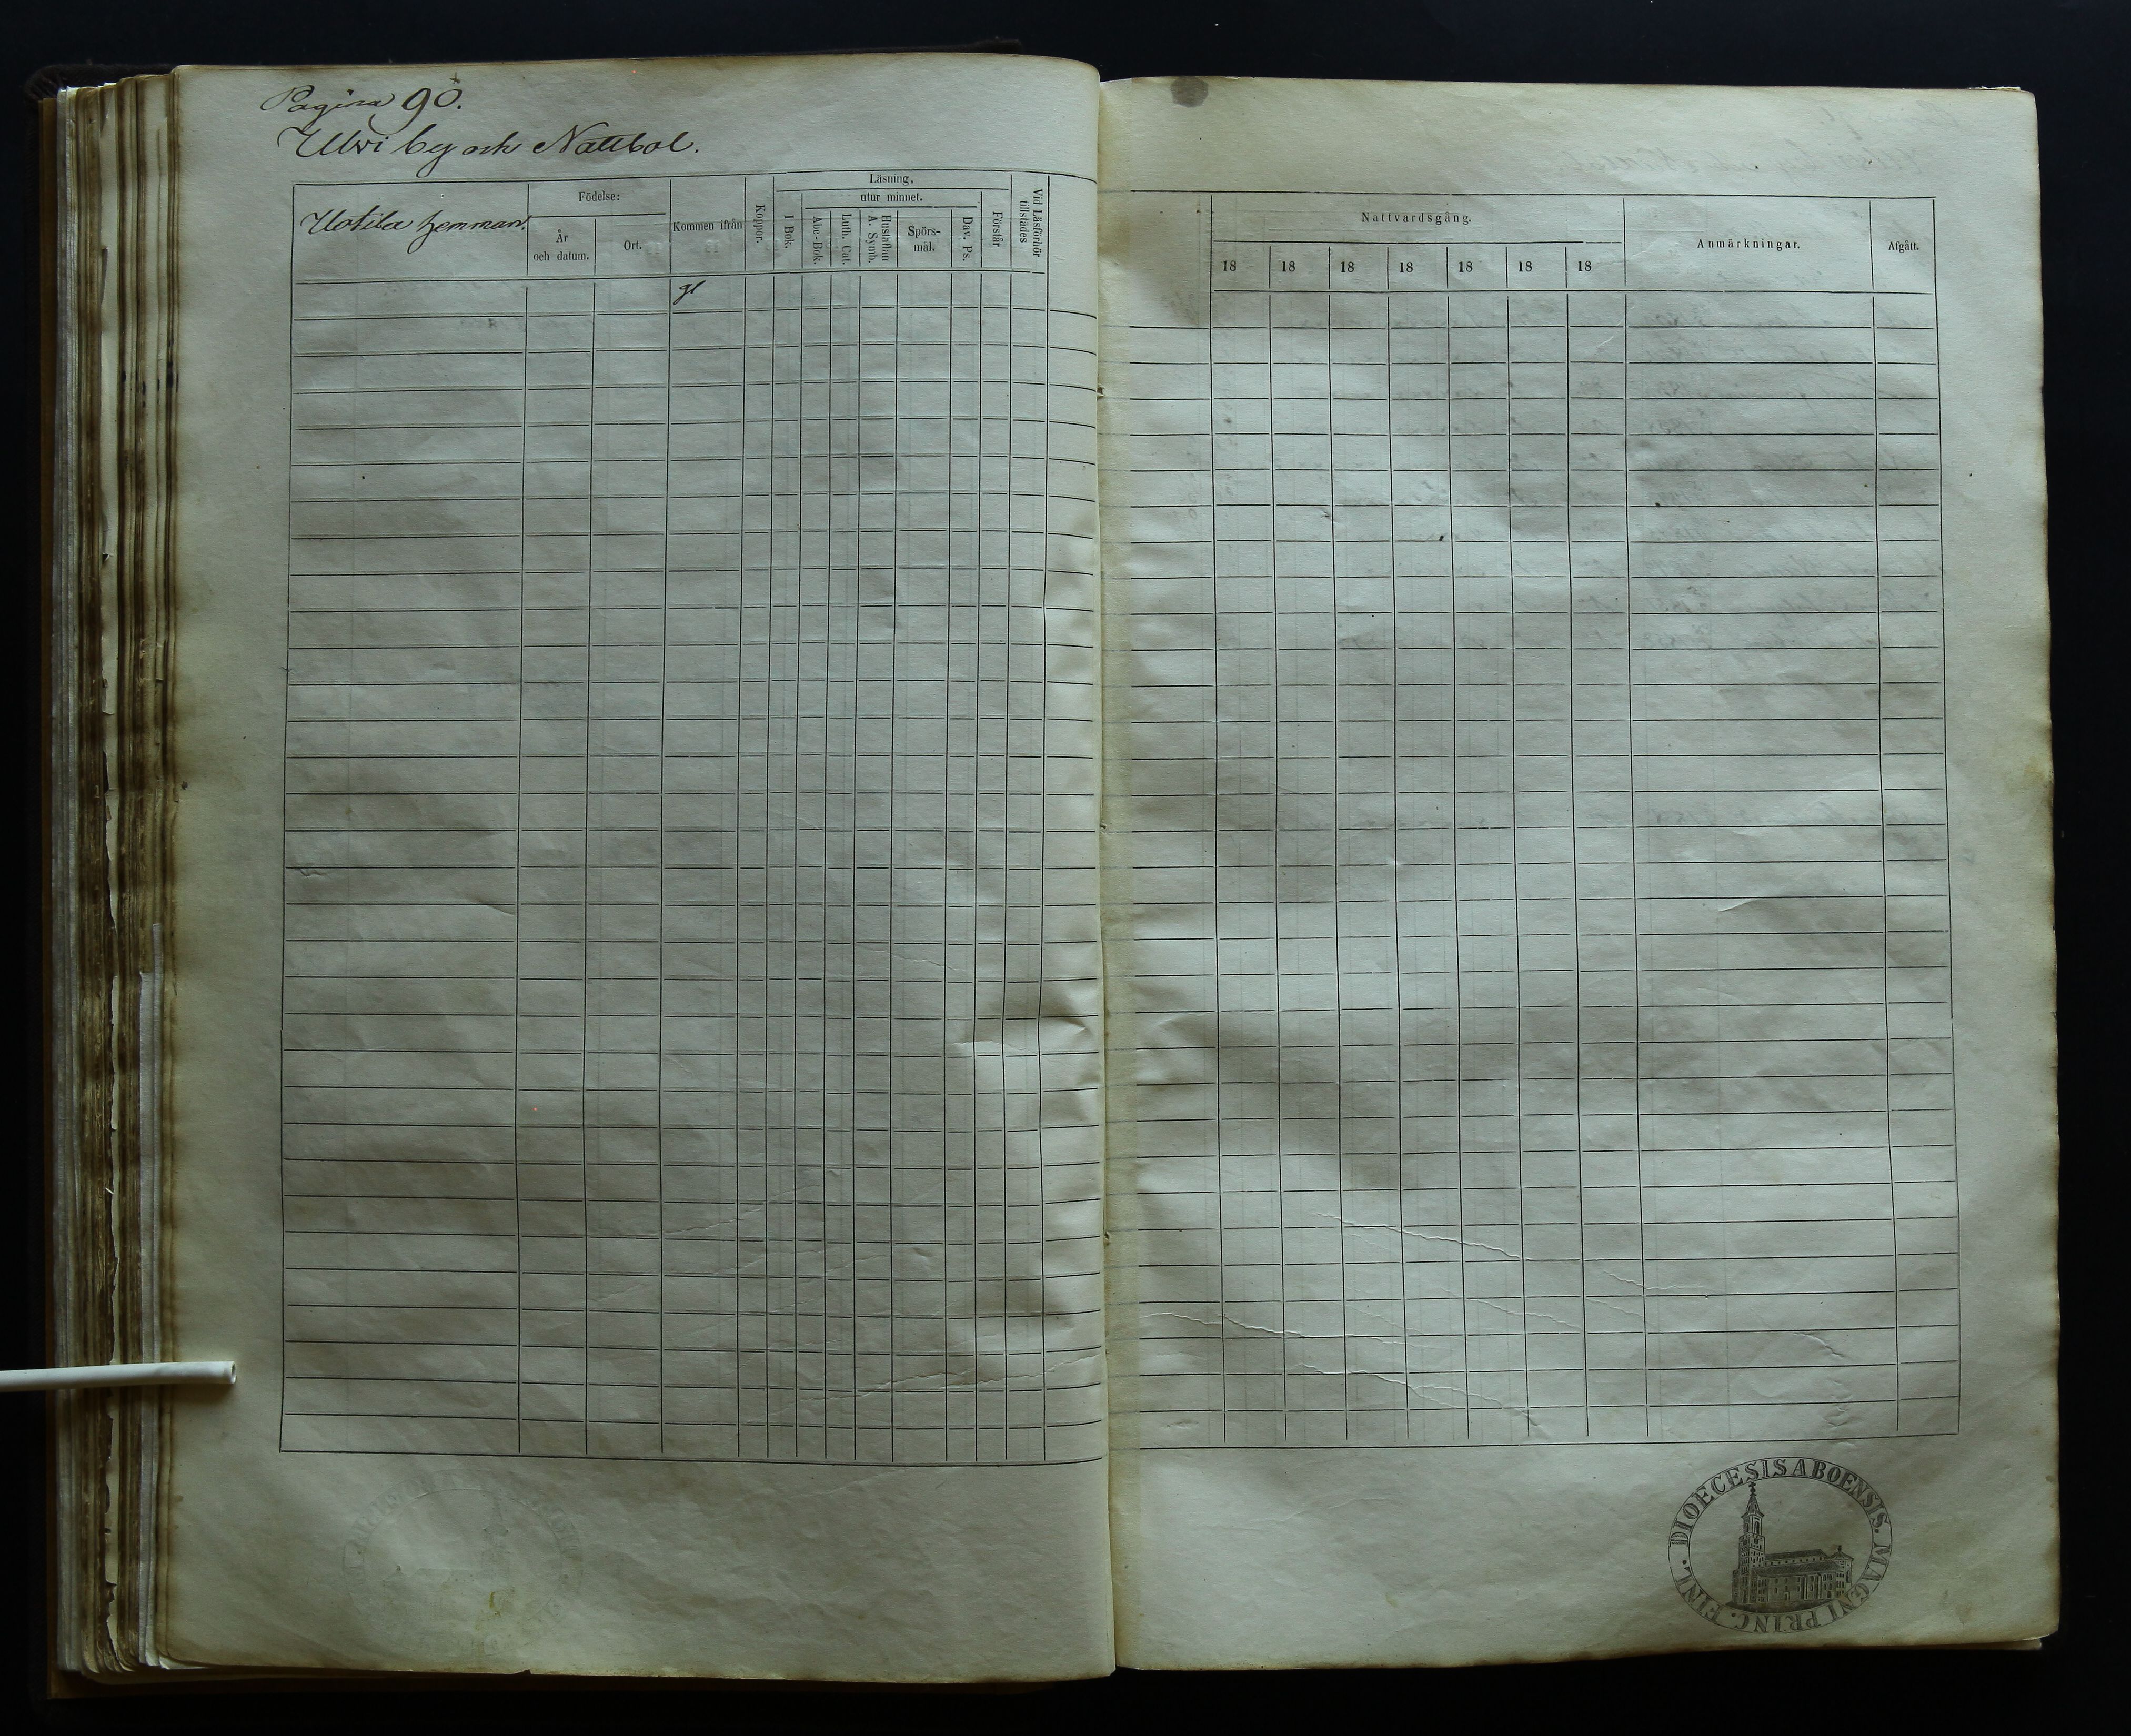 Pagina 90.
Ulvi by och Nattbol.
Uotila hemman.
Födelse:
År
och datum.
Ort.
Kommen ifrån
Koppor.
Läsning,
I Bok.
utur minnet.
Abc-Bok.
Luth. Cat.
Hustaflan
A. Symb.
Spörs-
mål.
Dav. Ps.
Förstår
Vid Läsförhör
tillstädes
Nattvardsgång.
18 18 18 18 18 18 18
Anmärkningar.
Afgått.
DIOECESIS ABOENSIS. MAGNI PRINC. FINL.